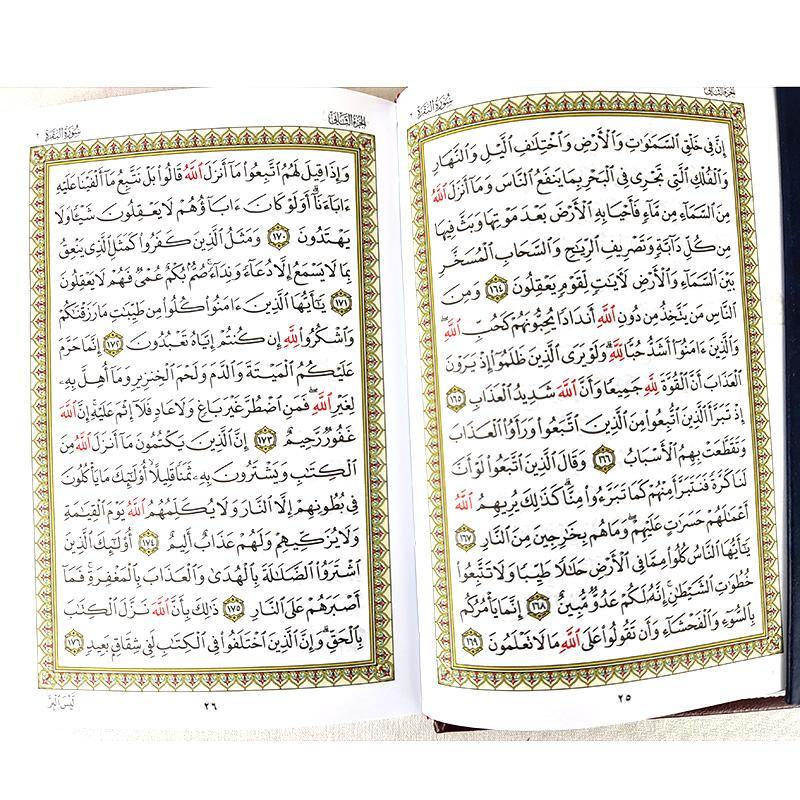 الجزء الثاني
سورة البقرة ٢
إِنَّ فِي خَلْقِ السَّمَٰوَٰتِ وَالْأَرْضِ وَاخْتِلَٰفِ الَّيْلِ وَالنَّهَارِ
وَالْفُلْكِ الَّتِي تَجْرِي فِي الْبَحْرِ بِمَا يَنفَعُ النَّاسَ وَمَا أَنزَلَ اللَّهُ
مِنَ السَّمَاءِ مِن مَّاءٍ فَأَحْيَا بِهِ الْأَرْضَ بَعْدَ مَوْتِهَا وَبَثَّ فِيهَا
مِن كُلِّ دَابَّةٍ وَتَصْرِيفِ الرِّيَٰحِ وَالسَّحَابِ الْمُسَخَّرِ
بَيْنَ السَّمَاءِ وَالْأَرْضِ لَءَايَٰتٍ لِّقَوْمٍ يَعْقِلُونَ ١٦٤ وَمِنَ
النَّاسِ مَن يَتَّخِذُ مِن دُونِ اللَّهِ أَندَادًا يُحِبُّونَهُمْ كَحُبِّ اللَّهِ
وَالَّذِينَ ءَامَنُوا أَشَدُّ حُبًّا لِّلَّهِ وَلَوْ يَرَى الَّذِينَ ظَلَمُوا إِذْ يَرَوْنَ
الْعَذَابَ أَنَّ الْقُوَّةَ لِلَّهِ جَمِيعًا وَأَنَّ اللَّهَ شَدِيدُ الْعَذَابِ ١٦٥
إِذْ تَبَرَّأَ الَّذِينَ اتُّبِعُوا مِنَ الَّذِينَ اتَّبَعُوا وَرَأَوُا الْعَذَابَ
وَتَقَطَّعَتْ بِهِمُ الْأَسْبَابُ ١٦٦ وَقَالَ الَّذِينَ اتَّبَعُوا لَوْ أَنَّ
لَنَا كَرَّةً فَنَتَبَرَّأَ مِنْهُمْ كَمَا تَبَرَّءُوا مِنَّا كَذَٰلِكَ يُرِيهِمُ اللَّهُ
أَعْمَٰلَهُمْ حَسَرَٰتٍ عَلَيْهِمْ وَمَا هُم بِخَٰرِجِينَ مِنَ النَّارِ ١٦٧
يَٰأَيُّهَا النَّاسُ كُلُوا مِمَّا فِي الْأَرْضِ حَلَٰلًا طَيِّبًا وَلَا تَتَّبِعُوا
خُطُوَٰتِ الشَّيْطَٰنِ إِنَّهُ لَكُمْ عَدُوٌّ مُّبِينٌ ١٦٨ إِنَّمَا يَأْمُرُكُم
بِالسُّوءِ وَالْفَحْشَاءِ وَأَن تَقُولُوا عَلَى اللَّهِ مَا لَا تَعْلَمُونَ ١٦٩
٢٥
الجزء الثاني
سورة البقرة ٢
وَإِذَا قِيلَ لَهُمُ اتَّبِعُوا مَا أَنزَلَ اللَّهُ قَالُوا بَلْ نَتَّبِعُ مَا أَلْفَيْنَا عَلَيْهِ
ءَابَاءَنَا أَوَلَوْ كَانَ ءَابَاؤُهُمْ لَا يَعْقِلُونَ شَيْئًا وَلَا
يَهْتَدُونَ ١٧٠ وَمَثَلُ الَّذِينَ كَفَرُوا كَمَثَلِ الَّذِي يَنْعِقُ
بِمَا لَا يَسْمَعُ إِلَّا دُعَاءً وَنِدَاءً صُمٌّ بُكْمٌ عُمْيٌ فَهُمْ لَا يَعْقِلُونَ
١٧١ يَٰأَيُّهَا الَّذِينَ ءَامَنُوا كُلُوا مِن طَيِّبَٰتِ مَا رَزَقْنَٰكُمْ
وَاشْكُرُوا لِلَّهِ إِن كُنتُمْ إِيَّاهُ تَعْبُدُونَ ١٧٢ إِنَّمَا حَرَّمَ
عَلَيْكُمُ الْمَيْتَةَ وَالدَّمَ وَلَحْمَ الْخِنزِيرِ وَمَا أُهِلَّ بِهِ
لِغَيْرِ اللَّهِ فَمَنِ اضْطُرَّ غَيْرَ بَاغٍ وَلَا عَادٍ فَلَا إِثْمَ عَلَيْهِ إِنَّ اللَّهَ
غَفُورٌ رَّحِيمٌ ١٧٣ إِنَّ الَّذِينَ يَكْتُمُونَ مَا أَنزَلَ اللَّهُ مِنَ
الْكِتَٰبِ وَيَشْتَرُونَ بِهِ ثَمَنًا قَلِيلًا أُولَٰئِكَ مَا يَأْكُلُونَ
فِي بُطُونِهِمْ إِلَّا النَّارَ وَلَا يُكَلِّمُهُمُ اللَّهُ يَوْمَ الْقِيَٰمَةِ
وَلَا يُزَكِّيهِمْ وَلَهُمْ عَذَابٌ أَلِيمٌ ١٧٤ أُولَٰئِكَ الَّذِينَ
اشْتَرَوُا الضَّلَٰلَةَ بِالْهُدَىٰ وَالْعَذَابَ بِالْمَغْفِرَةِ فَمَا
أَصْبَرَهُمْ عَلَى النَّارِ ١٧٥ ذَٰلِكَ بِأَنَّ اللَّهَ نَزَّلَ الْكِتَٰبَ
بِالْحَقِّ وَإِنَّ الَّذِينَ اخْتَلَفُوا فِي الْكِتَٰبِ لَفِي شِقَاقٍ بَعِيدٍ ١٧٦
لَيْسَ الْبِرَّ
٢٦